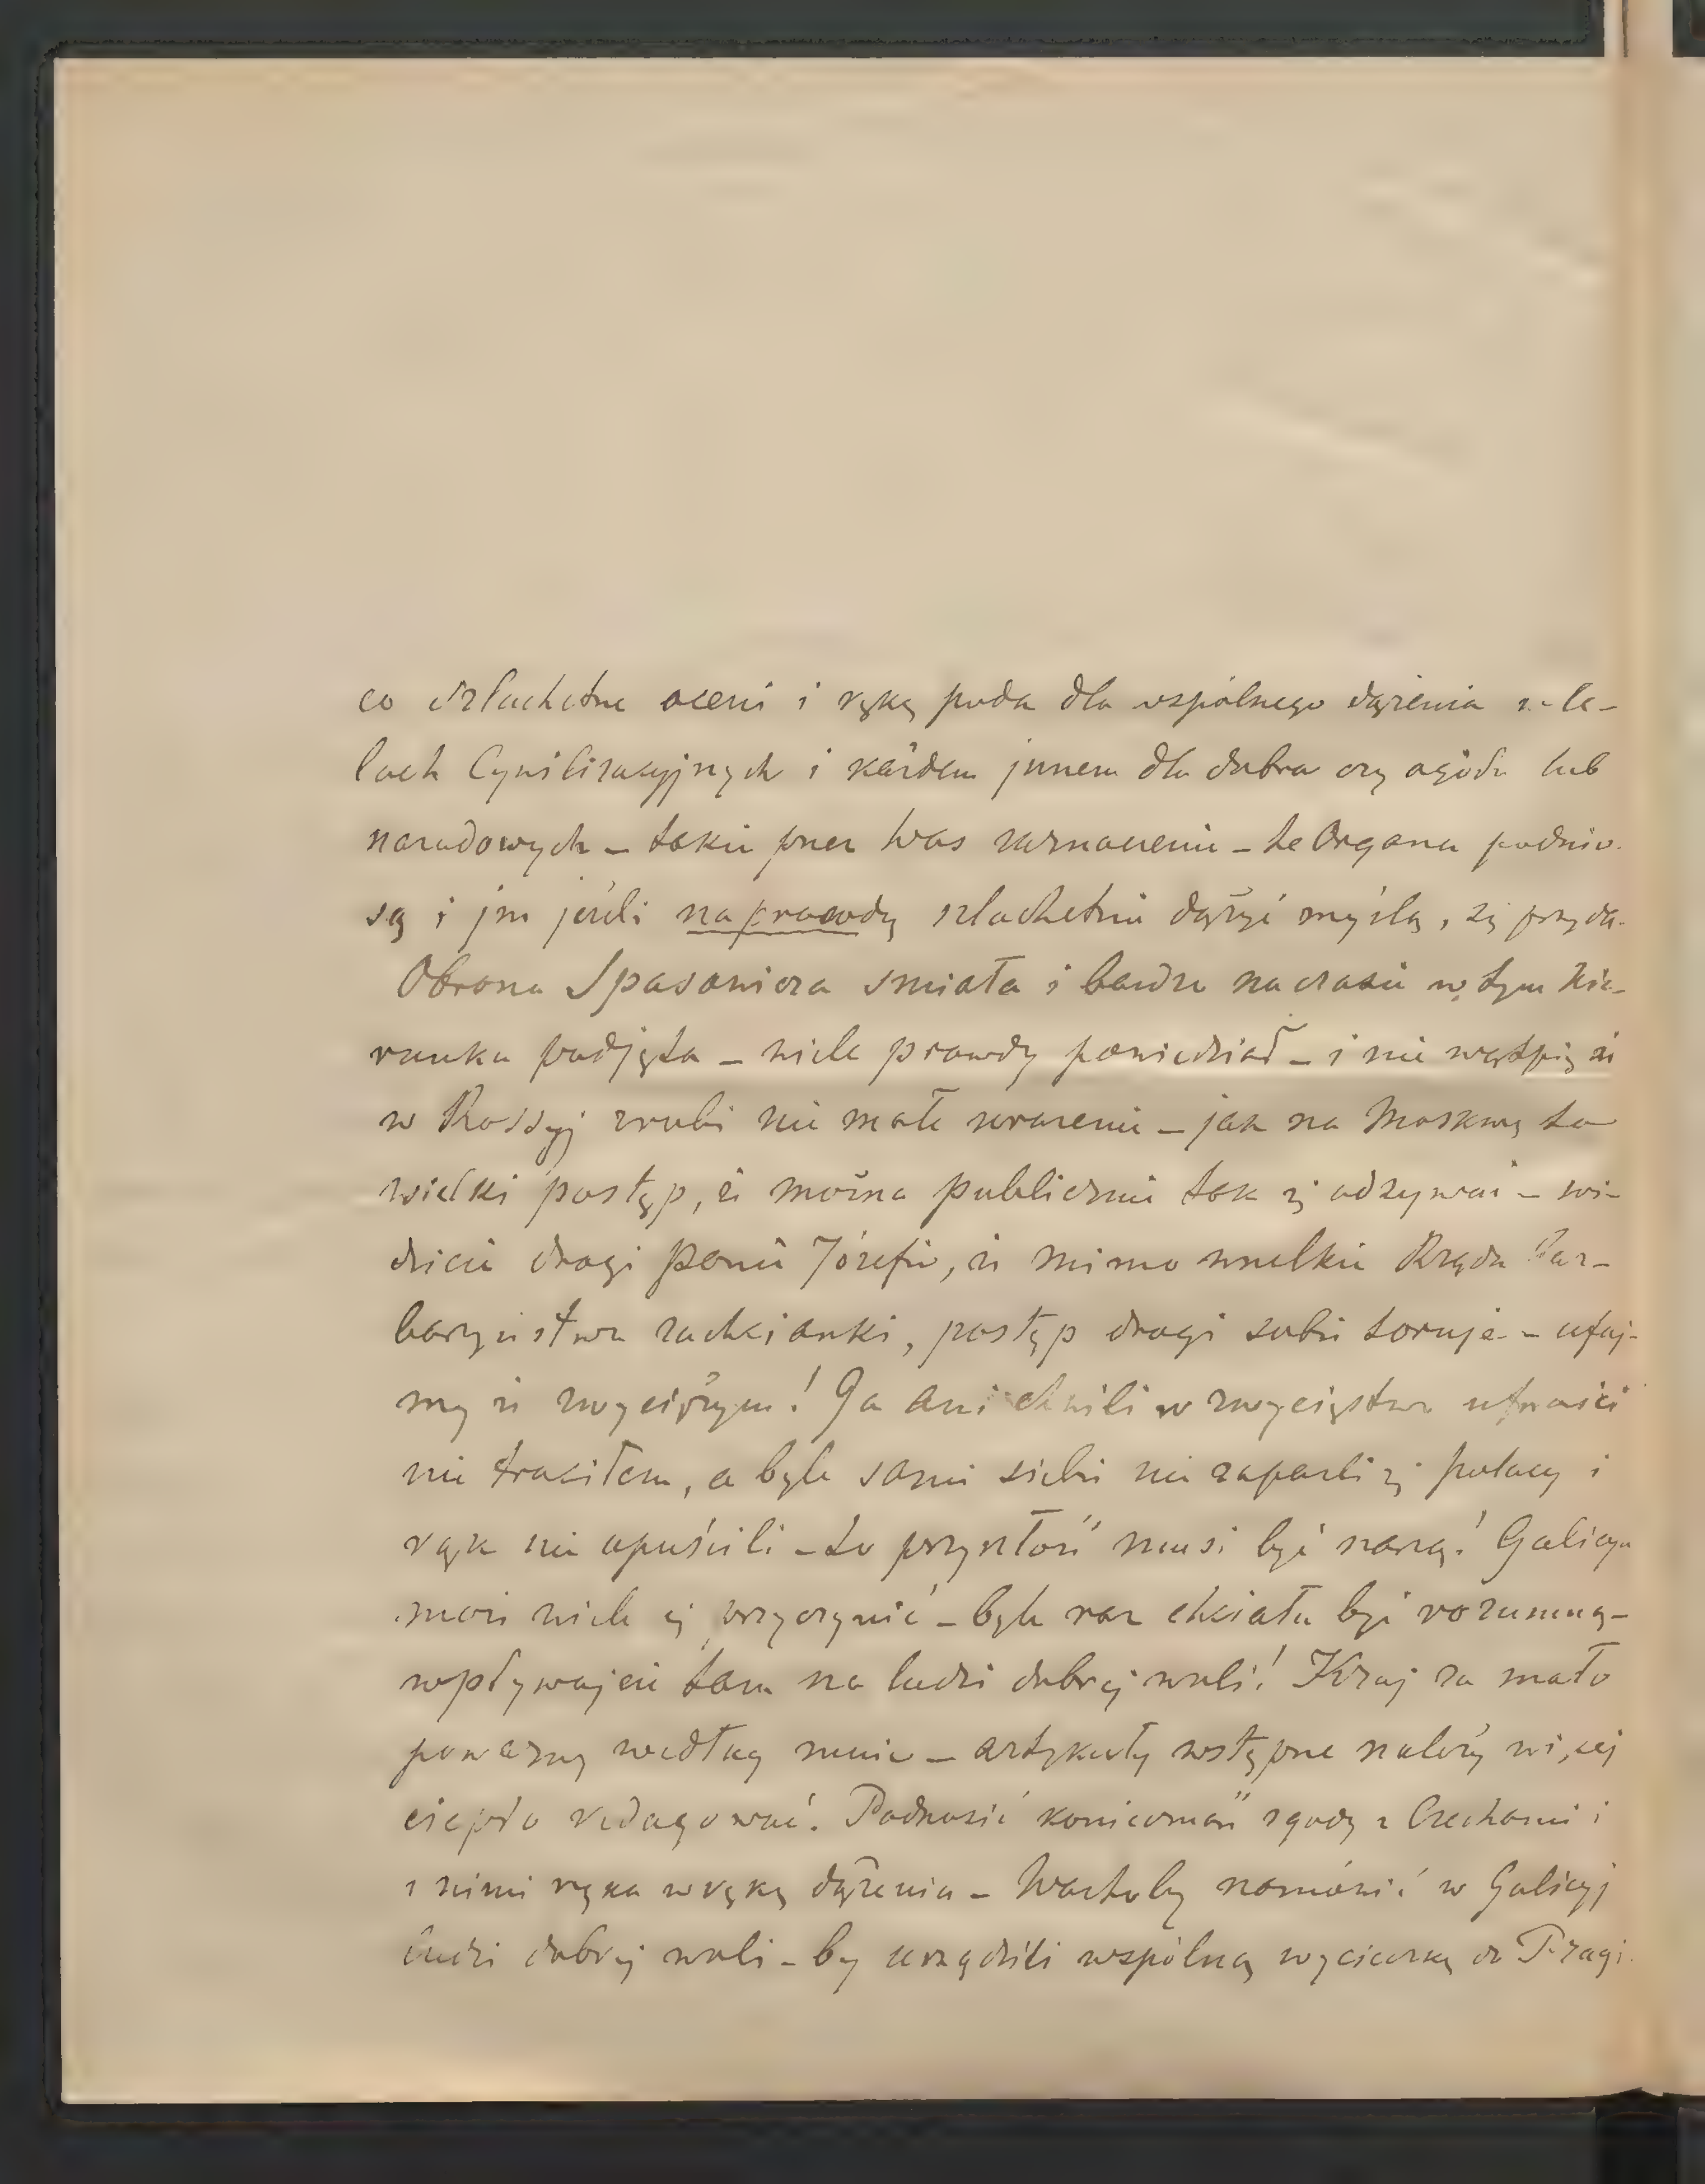 co szlachetne oceni i rękę poda dla wspólnego dążenia w ce-
lach Cywilizacyjnych i każdem jnnem dla dobra czy ogółu lub
narodowych – takie przez Was zaznaczenie – te Organa podnio-
są i jm jeśli naprawdę szlachetnie dążyć myślą, się przyda.
Obrona Spasowicza smiała i bardzo na czasie w tym kie-
runku podjęta – wiele prawdy powiedział – i nie wątpię że
w Rossyj zrobi nie małe wrażenie – jak na Moskwę to
wielki postęp, że można publicznie tak się odzywać – wi-
dzicie drogi panie Józefie, że mimo wszelkie Rządu bar-
barzyństwa zachcianki, postęp drogi sobie toruje – ufaj-
my że zwyciężym! Ja ani chwili w zwycięstwo ufności
nie traciłem, a byle sami siebie nie zaparli się polacy i
rąk nie opuścili – to przyszłość musi być naszą! Galicya
może wiele się przyczynić – byle raz chciała być rozumną –
wpływajcie tam na ludzi dobrej woli! Kraj za mało
poważny według mnie – artykuły wstępne należy więcej
ciepło redagować. Podnosić konieczność zgody z Czechami i
z nimi ręka w rękę dążenia – Wartoby namówić w Galicyj
ludzi dobrej woli – by urządzili wspólną wycieczkę do Pragi.